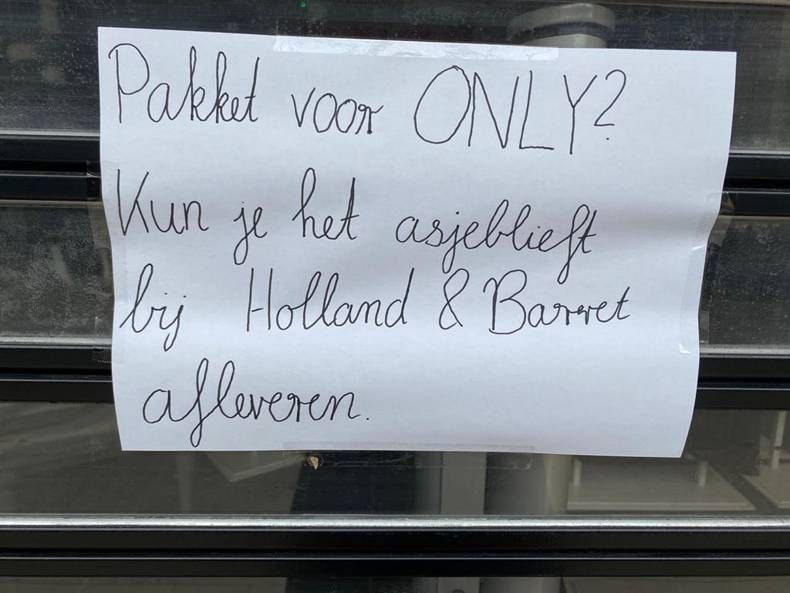 Pakket voor ONLY?
Kun je het asjeblieft
bij Holland & Barret
afleveren.